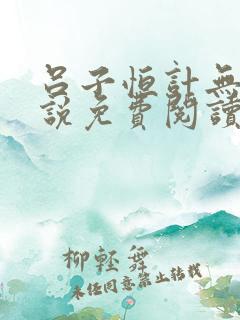 吕子恒計無
說免費閱讀
柳輕舞
未经同意禁止转载